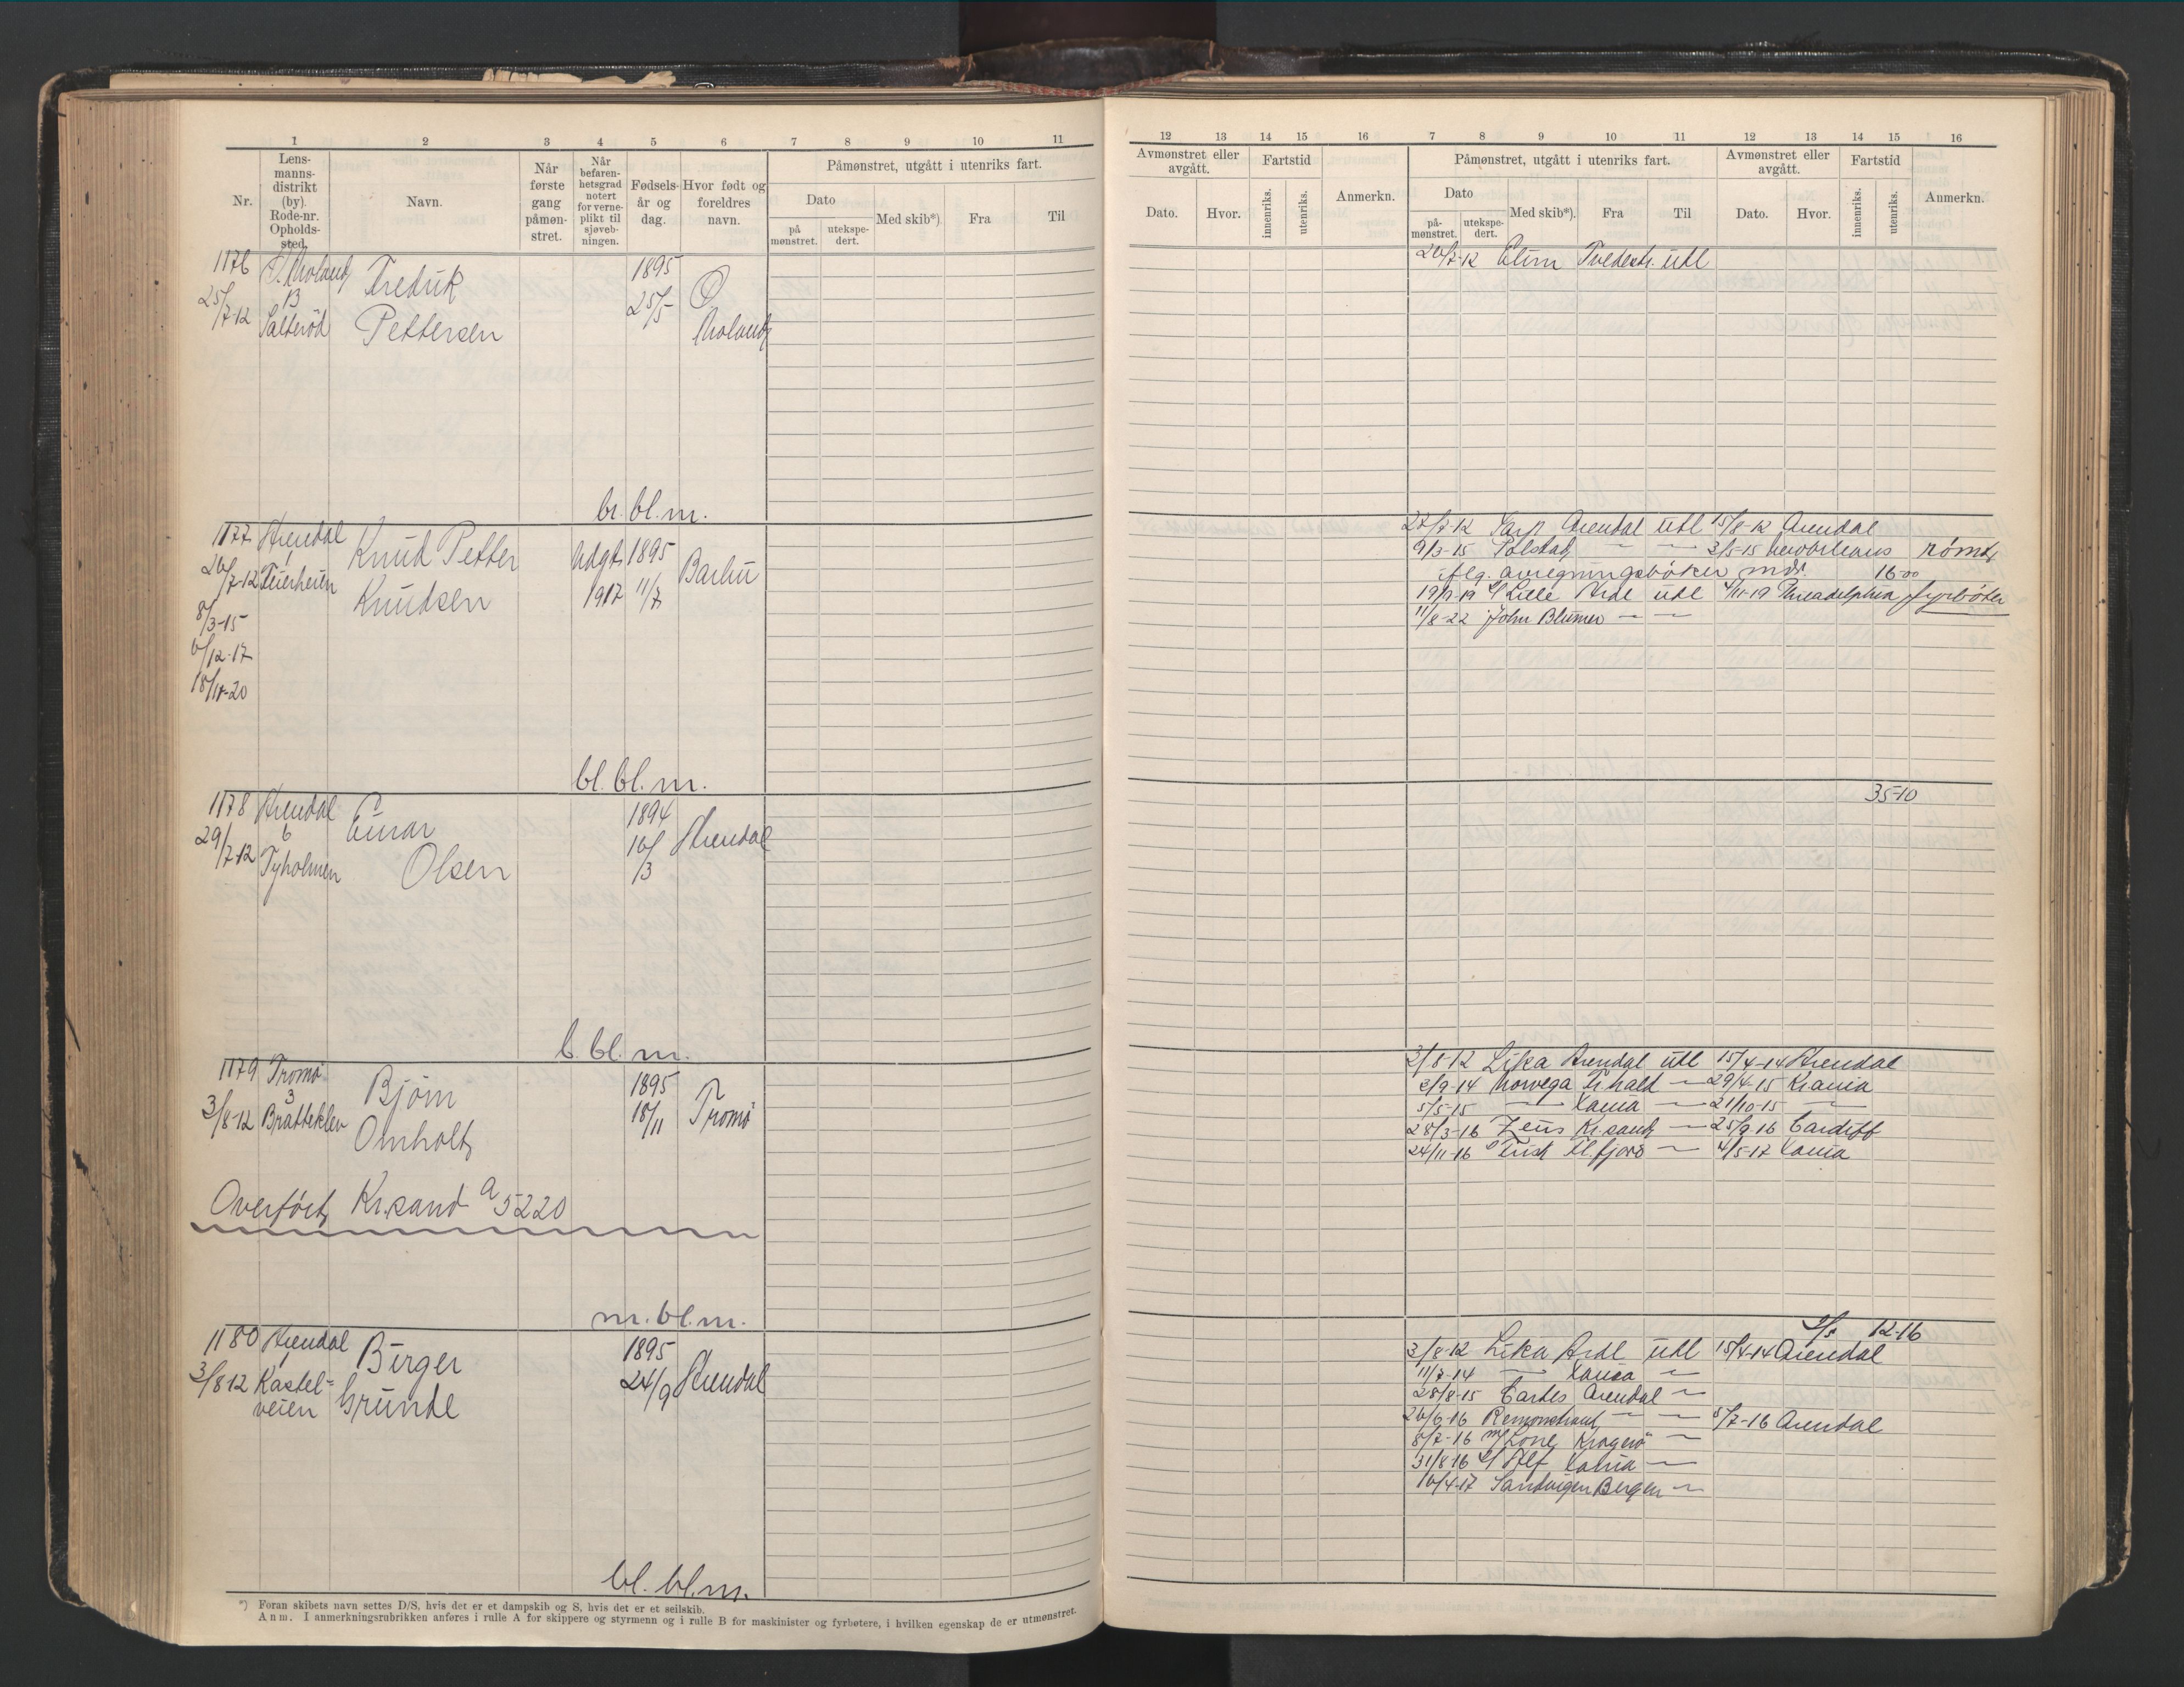 1 2 3 4 5 6 7 8 9 10 11
Nr.
Lens-
manns-
distrikt
(by).
Rode-nr.
Opholds-
sted.
Navn.
Når
første
gang
påmøn-
stret.
Når
befaren-
hetsgrad
notert
for verne-
plikt til
sjøveb-
ningen.
Fødsels-
år og
dag.
Hvor født og
foreldres
navn.
Påmønstret, utgått i utenriks fart.
Dato
på
mønstret.
utekspe-
dert.
Med skib*).
Fra
Til
1176
25/7-12
Ø. Moland
B
Salterød
Fredrik
Pettersen
1895
25/5
Ø
Moland
br. bl. m.
1177
26/7-12
8/3-15
6/12-17
18/11-20
Arendal
1
Teierheien
Knud Petter
Knudsen
Udgt.
1917
1895
11/7
Barbu
bl. bl. m.
1178
29/7-12
Arendal
6
Tyholmen
Einar
Olsen
1894
16/3
Arendal
b. bl. m.
1179
3/8-12
Tromø
3
Bratteklev
Bjørn
Omholt
1895
18/11
Tromø
Overført Kr.sand a 5220
m. bl. m.
1180
3/8 12
Arendal
1
Kastel=
veien
Birger
Grunde
1895
24/9
Arendal
bl. bl. m.
*) Foran skibets navn settes D/S, hvis det er et dampskib og S, hvis det er et seilskib.
Anm. I anmerkningsrubrikken anføres i rulle A for skippere og styrmenn og i rulle B for maskinister og fyrbøtere, i hvilken egenskap de er utmønstret.
12 13 14 15 16 7 8 9 10 11 12 13 14 15 16
Avmønstret eller
avgått.
Dato.
Hvor.
Fartstid
innenriks.
utenriks.
Anmerkn.
Påmønstret, utgått i utenriks fart.
Dato
på-
mønstret.
utekspe-
dert.
Med skib*).
Fra
Til
Avmønstret eller
avgått.
Dato.
Hvor.
Fartstid
innenriks.
utenriks.
Anmerkn.
26/7-12 Elim Tvedestr. utl
27/7-12 Arendal utl 15/8-12 Arendal
9/3-15 Polstad — — 3/5-15 Neworleans rømt
iflg. avregningsbøker mdr. 16-00
19/7-19 Lille Ardl utl 4/11-19 Phieadelphia fyrbøter
11/8-22 John Blumer — —
35-10
3/8-12 Lika Arendal utl 15/4-14 Arendal
2/9-14 Norvega Fr.hald — 29/4-15 Krania
5/5-15 — Xania — 21/10-15 —
28/3-16 Zeus Kr.sand — 25/9-16 Cardiff
24/11-16 — 4/5-17 Xania
12-16
3/8-12 Lika Ardl utl 15/4-14 Arendal
11/7-14 — Xania —
28/8-15 Arendal —
26/6-16 Remonstrant — — 8/7-16 Arendal
8/7-16 Kragerø —
31/8-16 Alf Xania —
16/4-17 Sandvigen Bergen —